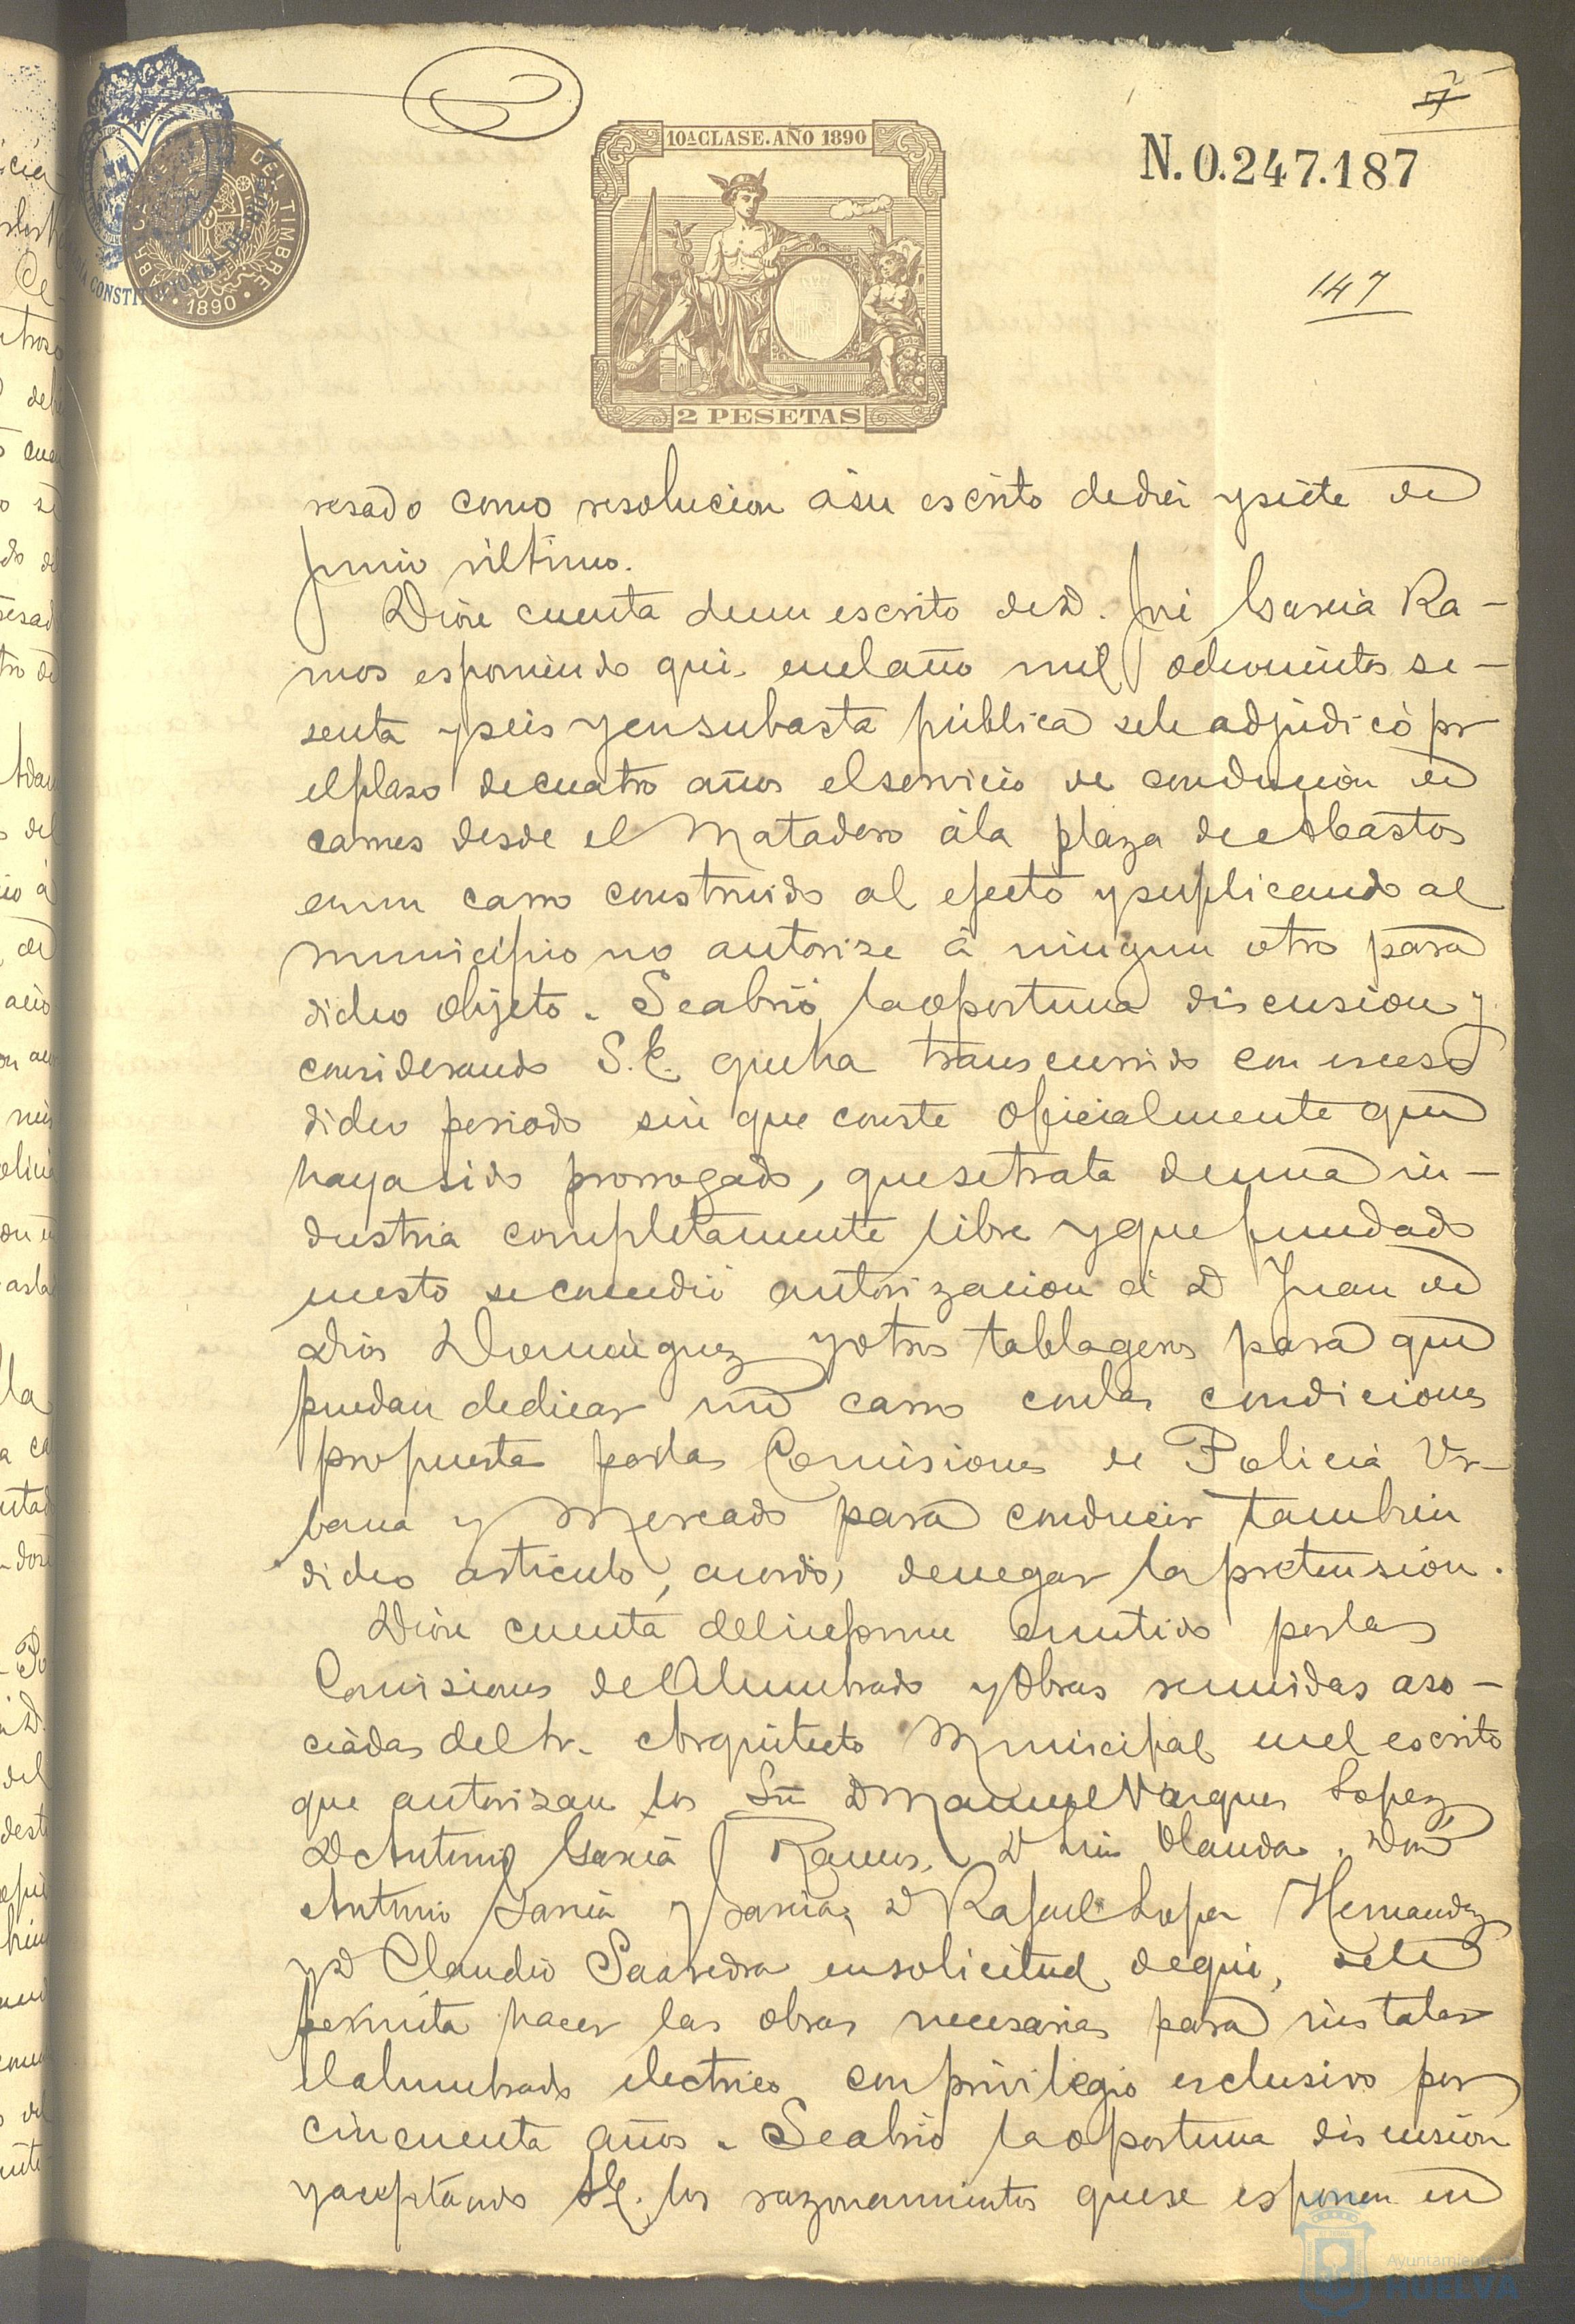 7
10ª CLASE. AÑO 1890
N. 0.247.187
TIMBRE
1890
CONSTITUCIONAL DE
147
2 PESETAS
resado como resolucion á su escrito de diez y siete de
Junio último.
Diose cuenta de un escrito de D. José Garcia Ra-
mos esponiendo que, en el año mil ochocientos se-
senta y seis y en subasta pública se le adjudicó por
el plaso de cuatro años el servicio de conducción de
carnes desde el Matadero á la plaza de Abastos
en un carro construido al efecto y suplicando al
municipio no autorise á ningun otro para
dicho objeto. Se abrió la oportuna discusion y
considerando S.E. que ha transcurrido con esceso
dicho periodo sin que conste oficialmente que
haya sido prorrogado, que se trata de una in-
dustria completamente libre y que fundado
en esto se concedió autorizacion á D Juan de
Dios Dominguez y otros tablageros para que
puedan dedicar un carro con las condiciones
propuestas por las Comisiones de Policia Ur-
bana y Mercado para conducir tambien
dicho articulo, acordó, denegar la pretension.
Diose cuenta del informe emitido por las
Comisiones de Alumbrado y Obras reunidas aso-
ciadas del Sr. Arquitecto Municipal en el escrito
que autorisan los Sres D Manuel Vazquez Lopez
D Antonio Garcia Ramos, D Luis Olanda, Don
Antonio Garcia y Garcia, D Rafael Lopez Hernandez
y D Claudio Saavedra en solicitud de que, se le
permita hacer las obras necesarias para instalar
el alumbrado electrico con privilegio esclusivo por
cincuenta años. Se abrió la oportuna discusion
y aceptando S.E. los razonamientos que se esponen en
Ayuntamiento de
HUELVA